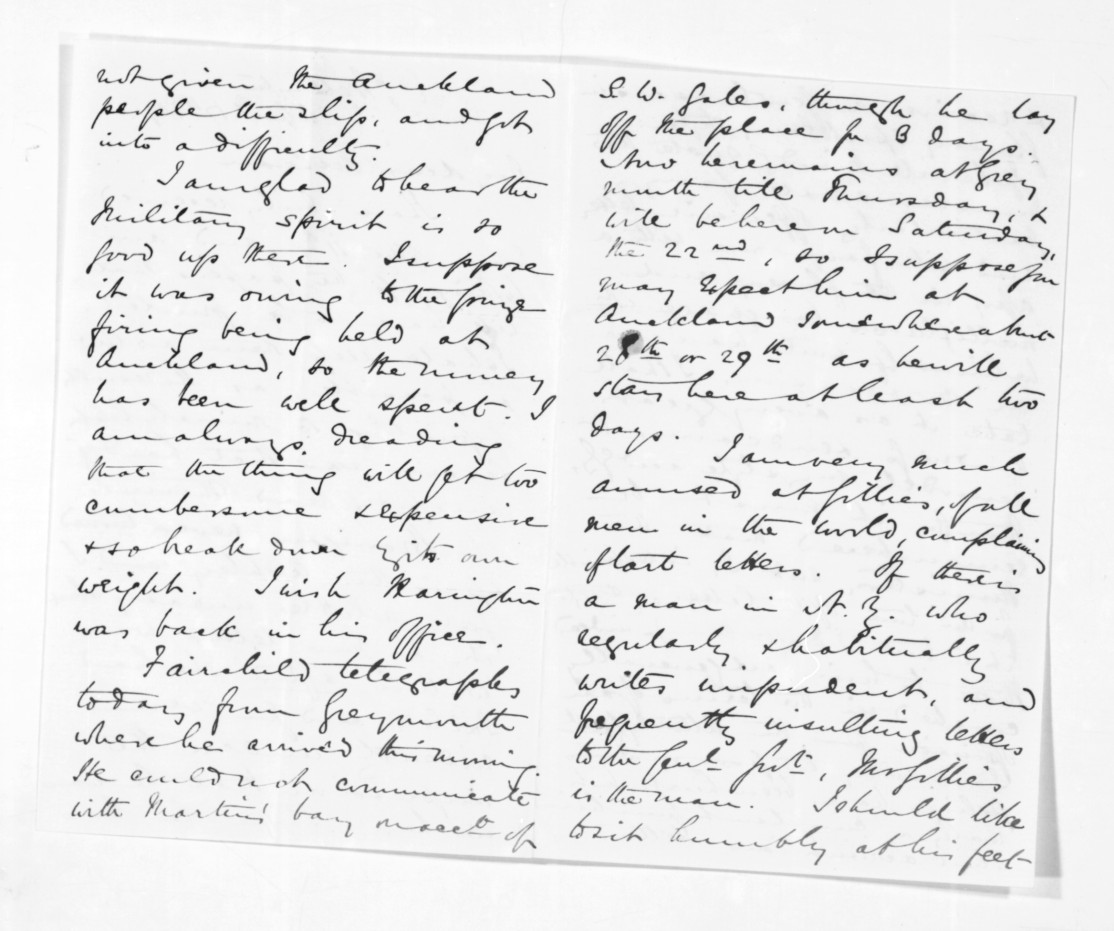 not given the Auckland
people the slip, and got
into a difficulty.
I am glad to hear the
Military spirit is so
good up there. I suppose
it was owing to the prize
firing being held at
Auckland, so the money
has been well spent. I
am always dreading
that the thing will get too
cumbersome & expensive
& so break down by its own
weight. I wish Harington
was back in his office.
Fairchild telegraphs
today from Greymouth
where he arrived this morning.
He could not communicate
with Martin's bay on acct. of
S. W. gales, though he lay
off the place for 3 days.
Now he remains at Grey
mouth till Thursday, &
will be here on Saturday,
the 22nd, so I suppose you
may expect him at
Auckland somewhere about
28th or 29th as he will
stay here at least two
days.
I am very much
amused at Gillies, of all
men in the world, complaining
of tart letters. If there is
a man in N. Z. who
regularly & habitually
writes impudent, and
frequently insulting letters
to the Genl. Govt., Mr Gillies
is the man. I should like
to sit humbly at his feet